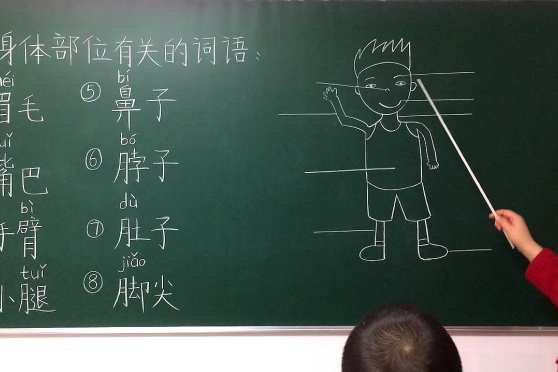 身体部位有关的词语:
éi bí
眉毛 ⑤ 鼻子
uǐ bó
嘴巴 ⑥ 脖子
bì dù
手臂 ⑦ 肚子
tuǐ jiǎo
小腿 ⑧ 脚尖